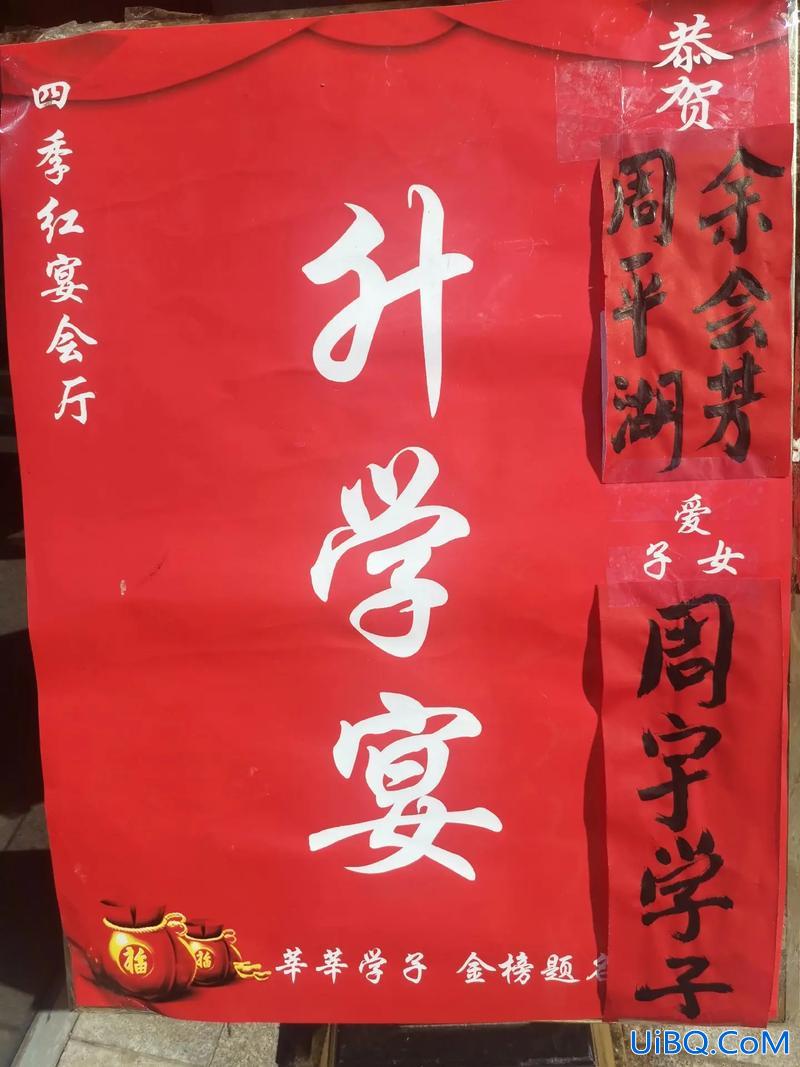 恭贺
余会芳
周平湖
爱
子女
周宇学子
升学宴
四季红宴会厅
莘莘学子 金榜题名
福
福
UiBQ.CoM